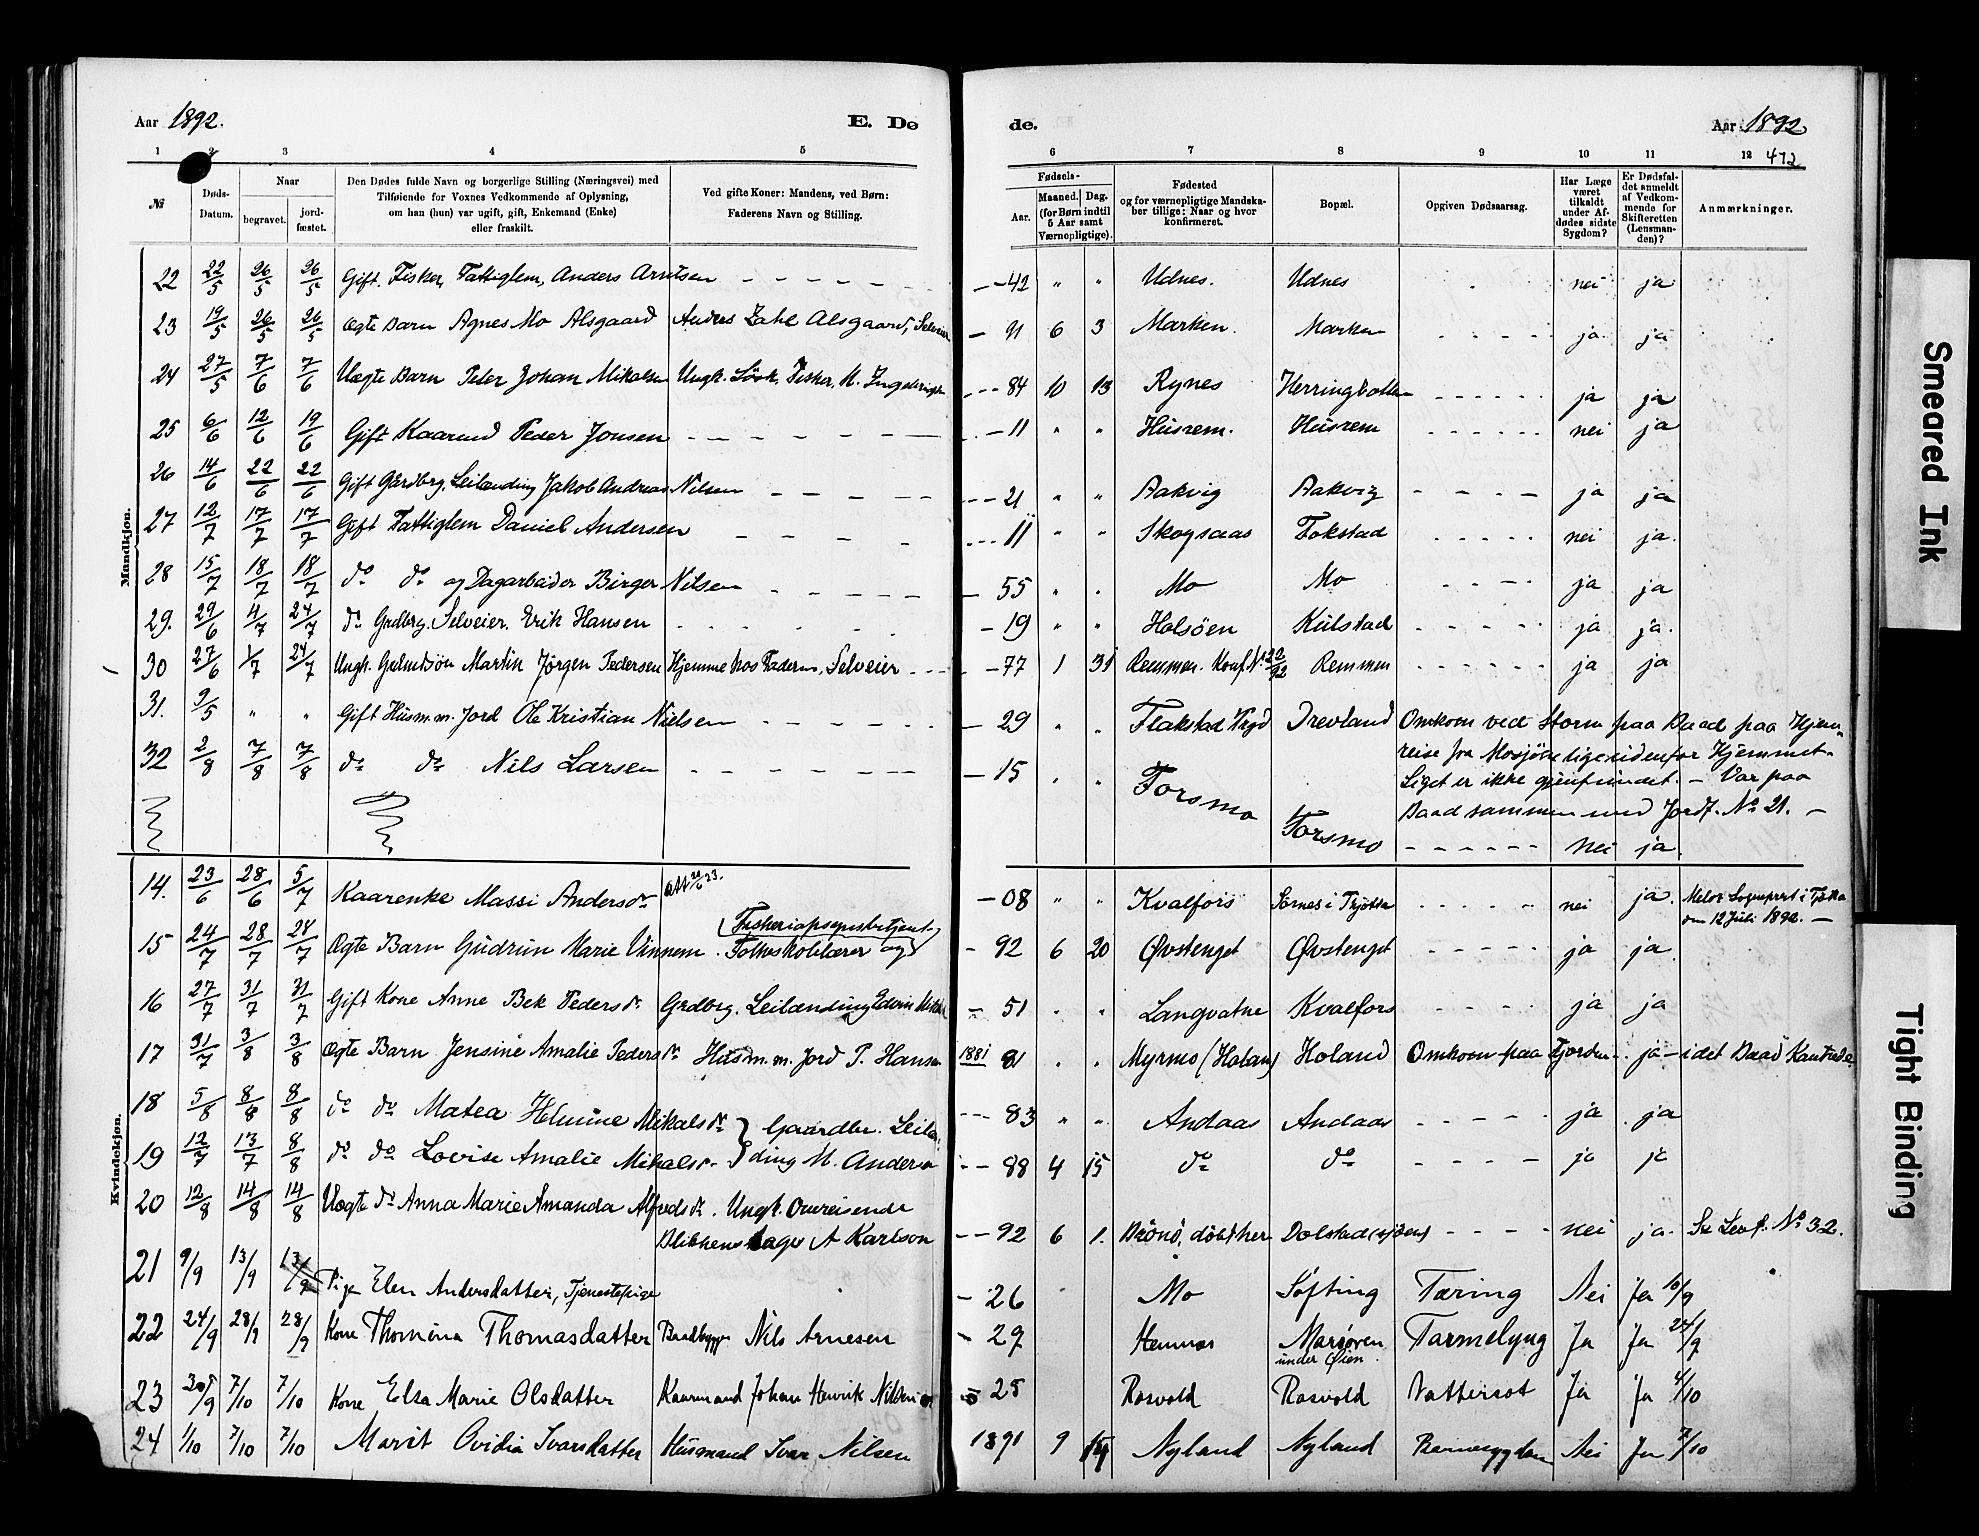 Aar 1892.
E. Dø
de.
Aar 1892
472
1 2 3 4 5 6 7 8 9 10 11 12
№
Døds-Datum.
Naar
begravet.
jord-fæstet.
Den Dødes fulde Navn og borgerlige Stilling (Næringsvei) med
Tilføiende for Voxnes Vedkommende af Oplysning,
om han (hun) var ugift, gift, Enkemand (Enke)
eller fraskilt.
Ved gifte Koner: Mandens, ved Børn:
Faderens Navn og Stilling.
Fødsels-
Aar.
Maaned. Dag.
(for Børn indtil
5 Aar samt
Værnepligtige).
Fødested
og for værnepligtige Mandska-
ber tillige: Naar og hvor
konfirmeret.
Bopæl.
Opgiven Dødsaarsag.
Har Læge
været
tilkaldt
under Af-
dødes sidste
Sygdom?
Er Dødsfal-
det anmeldt
af Vedkom-
mende for
Skifteretten
(Lensman-
den)?
Anmærkninger.
Mandkjøn.
22 22/5 26/5 26/5 Gift. Fisker, Fattiglem, Anders Arntsen - - - - - - 42 " " Udnes. Udnes nei ja
23 19/5 26/5 26/5 Ægte Barn Agnes Mo Alsgaard Anders Zahl Alsgaard, Selveier - 91 6 3 Marken. Marken ja ja
24 27/5 7/6 7/6 Uægte Barn Peter Johan Mikalsen Ungk. Fisker, M. - - 84 10 13 Rynes Herringbotten ja ja
25 6/6 12/6 19/6 Gift Kaarmd Peder Jonsen - - 11 " " Husrem. Husrem nei ja
26 14/6 22/6 22/6 Gift Gårdbrg. Leilænding Jakob Andreas Nilsen - - 21 " " Aakvig Aakvig ja ja
27 12/7 17/7 17/7 Gift Fattiglem Daniel Andersen - - 11 " " Skogsaas Fokstad nei ja.
28 15/7 18/7 18/7 do do og Dagarbeider Birger Nilsen - 55 " " Mo Mo ja ja
29. 29/6 4/7 24/7 do Grdbrg. Selveier. Erik Hansen - 19 " " Holsöen Kulstad ja ja.
30 27/6 1/7 24/7 Ungk. Martin Jørgen Pedersen Hjemme hos Faderen, Selveier - 77 1 31 Remmen. Konf. Remmen ja ja
31. 9/5 " " Gift Husm. m. Jord Ole Kristian Nielsen - 29 " " Flakstad Drevland Omkom ved Storm paa Baad paa Hjem-
reise fra Mosjøen lige udenfor Hjemmet.
Liget er ikke gjenfundet. - Var paa
Baad sammen med Jordf. № 21. -
32 2/8 7/8 7/8 do do Nils Larsen - 15 " " Forsmo Forsmo nei ja.
Kvindekjøn.
14. 23/6 28/6 5/7 Kaarenke Massi Andersdr - 08 " " Kvalfors i Tjøtta nei ja. i Tjøtta
den 12 Juli 1892. -
15 24/7 28/7 28/7 Ægte Barn Gudrun Marie Vinnem. Folkeskolelærer og (Fiskeriopsynsbetjent) - 92 6 20 Øvstenget Øvstenget ja ja.
16 27/7 31/7 31/7 Gift Kone Anne Bek Pedersdr. Grdbrg. Leilænding - 51 " " Langvatne Kvalfors ja ja
17 31/7 3/8 3/8 Ægte Barn Jensine Amalie Pedersdr Husm. m. Jord P. Hansen 1881 81 " " Myrmo (Holand) Holand Omkom paa Fjorden - ja - idet Baad Kantrede
18 5/8 8/8 8/8 do do Matea Helmine Mikalsdr } Gaardbr. Leilæn- - 83 " " Andaas Andaas ja ja
19 12/7 13/7 8/8 do do Lovise Amalie Mikalsdr. } ding M. Andersen - 88 4 15 do do ja ja
20 12/8 14/8 14/8 Uægte do Anna Marie Amanda Alfredsdr. Ungk. Omreisende
Blikkenslager A Karlson - 92 6 1. Brönö, döbt her Dolstad nei ja. Se Levf. № 32.
21 9/9 13/9 13/9 Pige Elen Andersdatter, Tjenestepige - 26 Mo Søfting Tæring Nei Ja 10/9
22 24/9 28/9 28/9 Kone Thomina Thomasdatter Baadbygger Nils Arnesen - 29 Hemnæs Marsøren
under Øien. Tarmslyng Ja Ja 24/9
23 30/9 7/10 7/10 Kone Elsa Marie Olsdatter Kaarmand Johan Henrik Nilsen - 25 Rosvold Rosvold Vattersot Ja Ja 4/10
24 1/10 7/10 7/10 Marit Ovidia Ivarsdatter Husmand Ivar Nilsen 1891 9 Nyland Nyland Nei Ja 7/10
Smeared Ink
Tight Binding